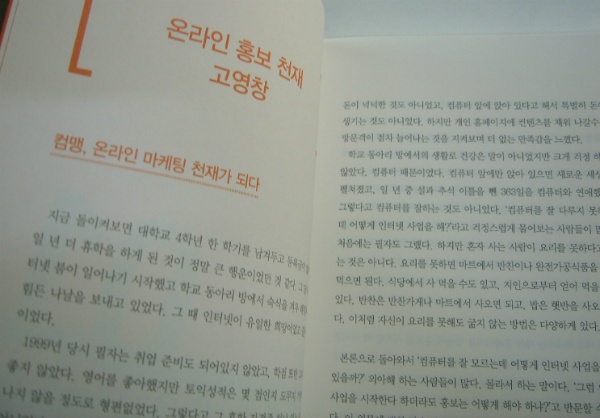 온라인 홍보 천재
고영창
컴맹, 온라인 마케팅 천재가 되다
지금 돌이켜보면 대학교 4학년 한 학기를 남겨두고
일 년 더 휴학을 하게 된 것이 정말 큰 행운이었던 것 같다. 그
터넷 붐이 일어나기 시작했고 학교 동아리 방에서 숙식을
힘든 나날을 보내고 있었다. 그 때 인터넷이 유일한
이었다.
1999년 당시 필자는 취업 준비도 되어있지 않았고, 학점 또한
좋지 않았다. 영어를 좋아했지만 토익성적은 몇 점인지
나지 않을 정도로 형편없었다. 그렇다고 그
돈이 넉넉한 것도 아니었고, 컴퓨터 앞에 앉아 있다고 해서 특별히 돈
생기는 것도 아니었다. 하지만 개인 홈페이지에 컨텐츠를 채워 나갈수
방문객이 점차 늘어나는 것을 지켜보며 더 없는 만족감을 느꼈다.
학교 동아리 방에서의 생활로 건강은 말이 아니었지만 크게 걱정
않았다. 컴퓨터 때문이었다. 컴퓨터 앞에만 앉아 있으면 새로운 세상
펼쳐졌고, 일 년 중 설과 추석 이틀을 뺀 363일을 컴퓨터와 연애했
그렇다고 컴퓨터를 잘하는 것도 아니었다. '컴퓨터를 잘 다루지 못
데 어떻게 인터넷 사업을 해?'라고 걱정스럽게 물어보는 사람들이 많
처음에는 필자도 그랬다. 하지만 혼자 사는 사람이 요리를 못하다고
는 것은 아니다. 요리를 못하면 마트에서 반찬이나 완전가공식품을
먹으면 된다. 식당에서 사 먹을 수도 있고, 지인으로부터 얻어 먹을
있다. 반찬은 반찬가게나 마트에서 사오면 되고, 밥은 햇반을 사오
다. 이처럼 자신이 요리를 못해도 굶지 않는 방법은 다양하게 있다.
본론으로 돌아와서 '컴퓨터를 잘 모르는데 어떻게 인터넷 사업을
있을까?' 의아해 하는 사람들이 많다. 몰라서 하는 말이다. '그런
사업을 시작한다 하더라도 홍보는 어떻게 해야 하냐?'고 반문할